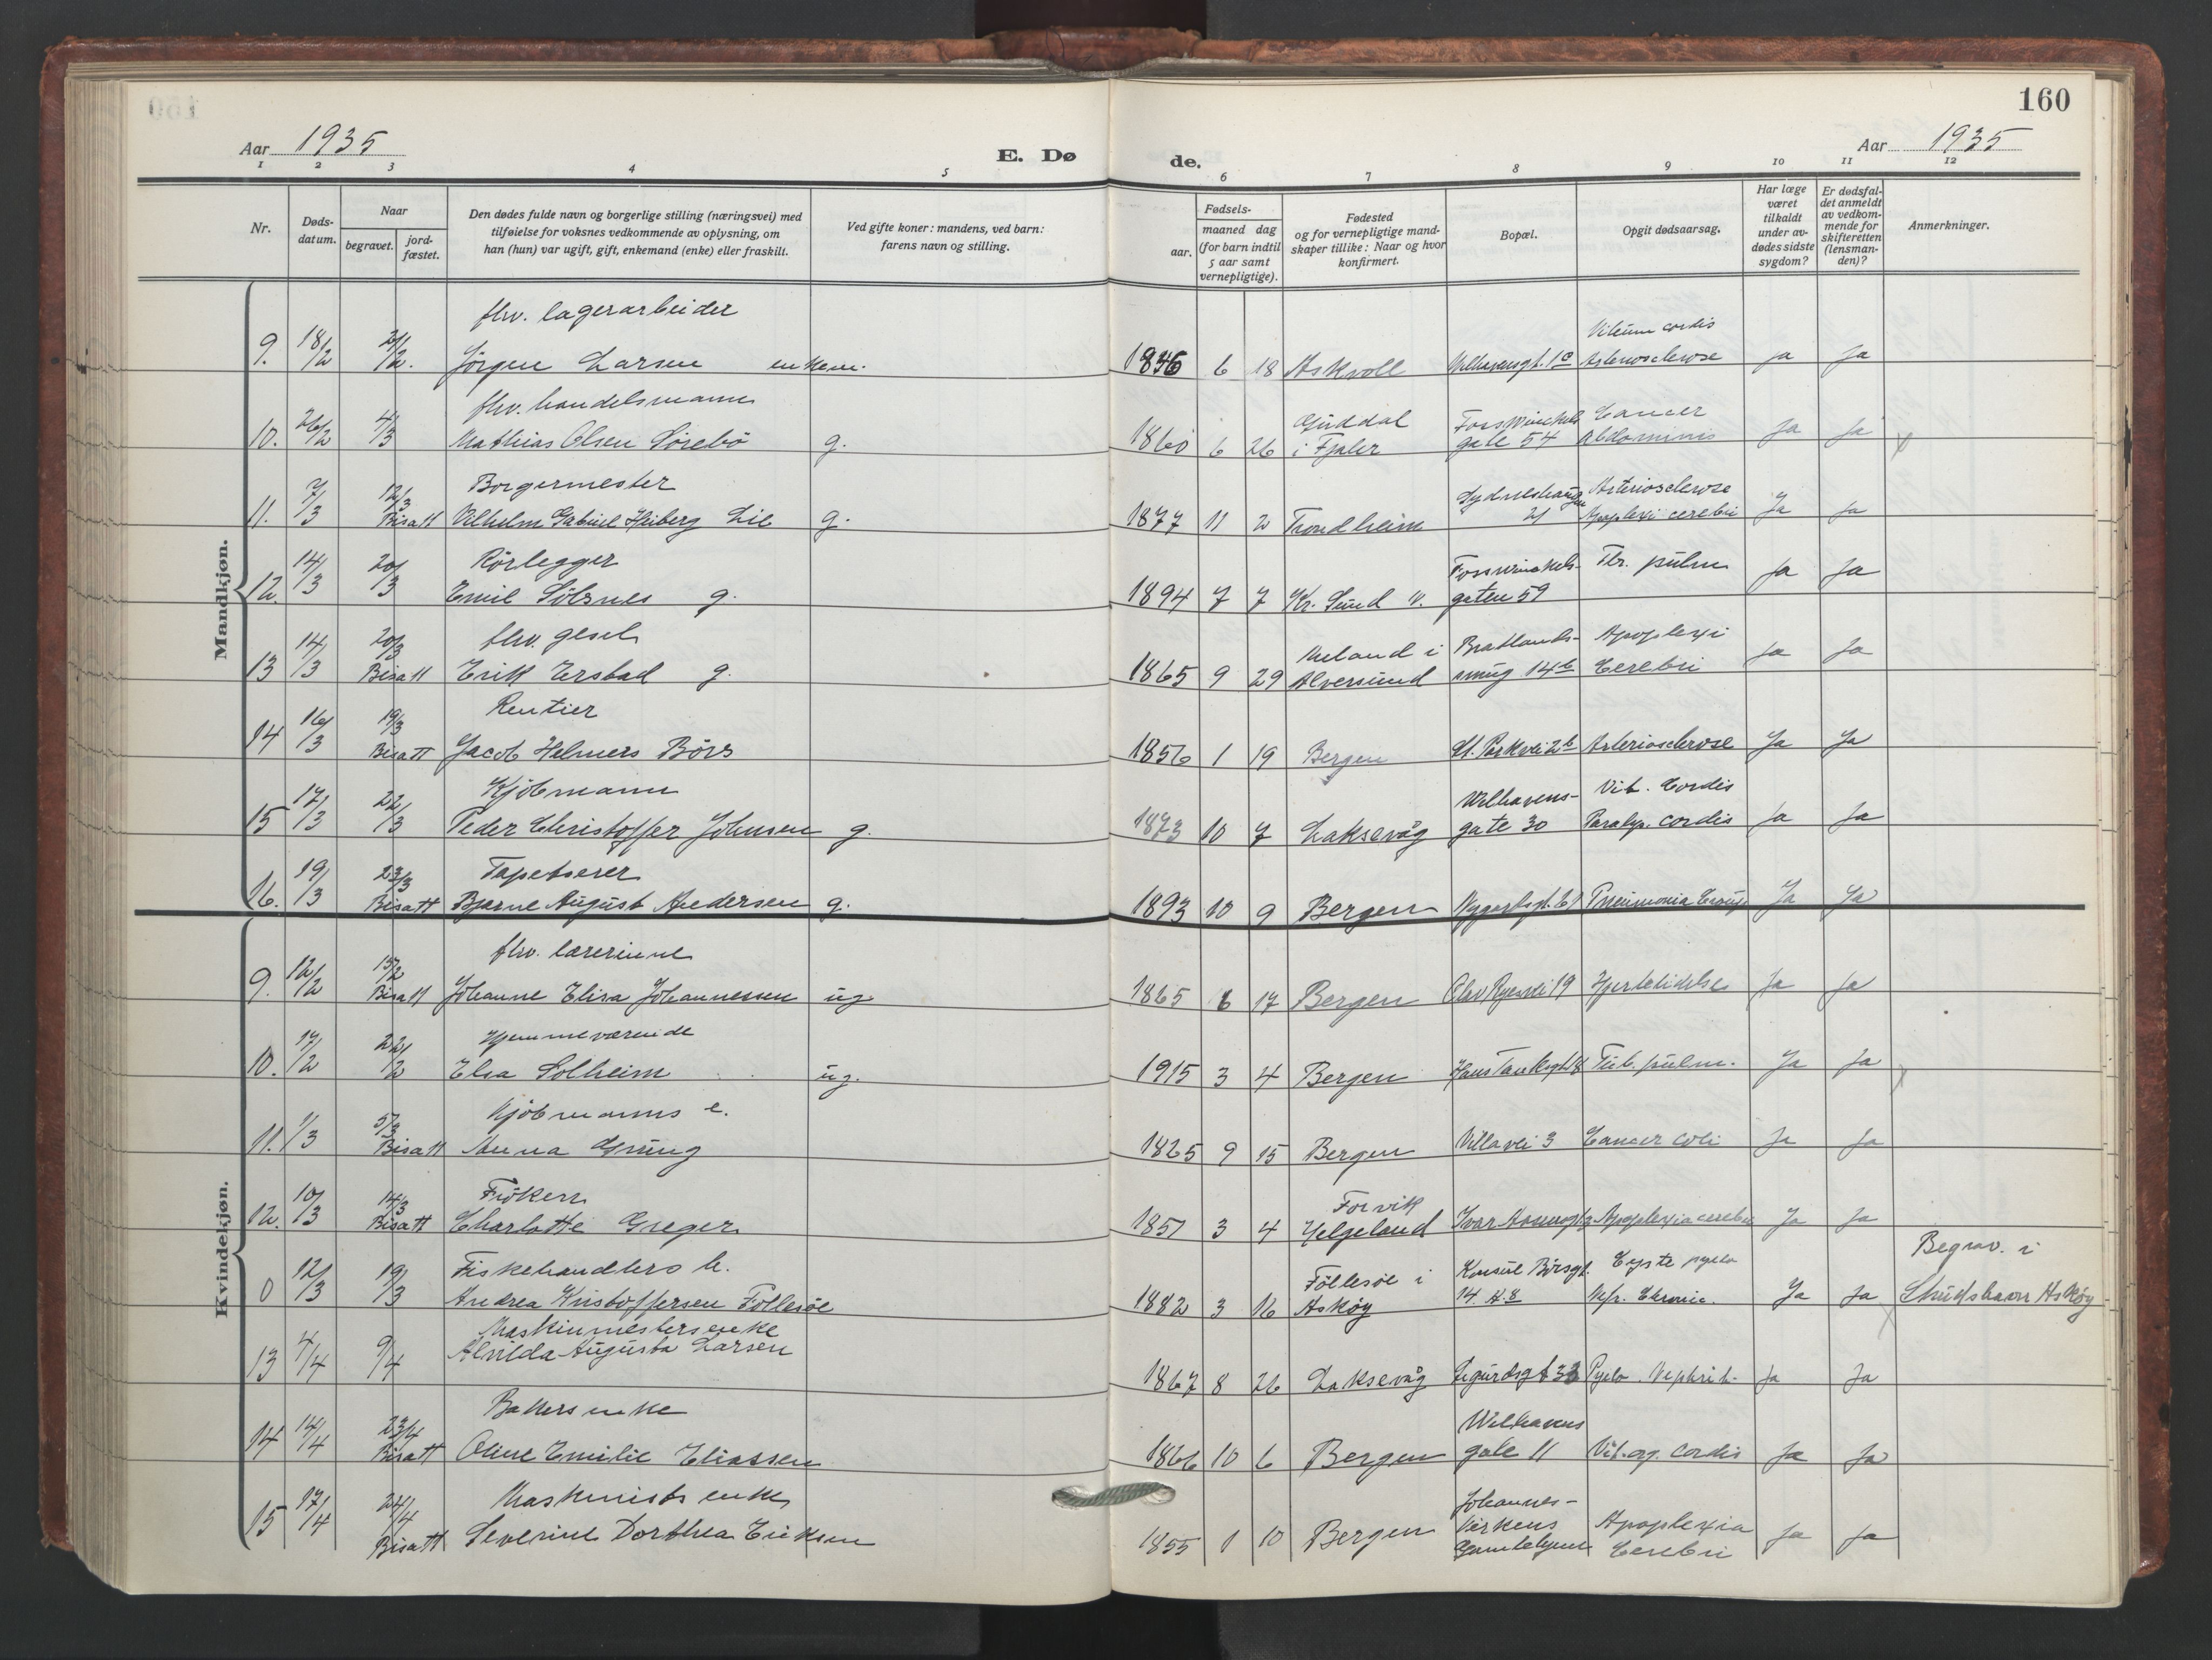 160
Aar 1935
E. Dø
de.
Aar 1935
1 2 3 4 5 6 7 8 9 10 11 12
Nr.
Døds-
datum.
Naar
begravet.
jord-
fæstet.
Den dødes fulde navn og borgerlige stilling (næringsvei) med
tilføielse for voksnes vedkommende av oplysning, om
han (hun) var ugift, gift, enkemand (enke) eller fraskilt.
Ved gifte koner: mandens, ved barn:
farens navn og stilling.
Fødsels-
aar.
maaned dag
(for barn indtil
5 aar samt
vernepligtige).
Fødested
og for vernepligtige mand-
skaper tillike: Naar og hvor
konfirmert.
Bopæl.
Opgit dødsaarsag.
Har læge
været
tilkaldt
under av-
dødes sidste
sygdom?
Er dødsfal-
det anmeldt
av vedkom-
mende for
skifteretten
(lensman-
den)?
Anmerkninger.
Mandkjøn.
fhv. lagerarbeider Vitium cordis
9. 18/2 Jörgen Larsen enkem. 1846 6 18 Askvoll Arteriosclerose ja Ja
fhv. handelsmann Guddal Cancer
10. 26/2 4/3 Mathias Olsen Sörebö g. 1860 6 26 i Fjaler gate 54 abdominis Ja Ja
Borgermester Arteriosclerose
11. 7/3 12/3 Bisatt Vilhelm Gabriel Heiberg Lie g. 1877 11 2 Trondheim 21 Apoplexi cerebri Ja Ja
Rörlegger Fosswinckels-
12. 14/3 20/3 Emil Sölsnes g. 1894 7 7 Kr. Sund N. gaten 59 pulm Ja Ja
fhv. gesel Meland i Bratlands- Apoplexi
13 14/3 20/3 Bisatt Erik Ersbad g. 1865 9 29 Alversund smug 14b Cerebri Ja Ja
Rentier
14 16/3 19/3 Bisatt Jacob Helmers Börs 1856 1 19 Bergen St. Parkvei 2b Arteriosclerose Ja Ja
Kjöbmann Welhavens- Vit. Cordis
15 17/3 22/3 Peder Christoffer Johnsen g. 1873 10 7 Laksevåg gate 30 Paralys. cordis Ja Ja
Tapetserer
16. 19/3 23/3 Bisatt Bjarne August Andersen g. 1893 10 9 Bergen Nygaardsgt. 61 Pneumonia Croup. Ja Ja
Kvindekjøn.
fhv. lærerinne
9. 12/2 15/2 Bisatt Johanne Elisa Johannessen ug 1865 6 17 Bergen Olav Ryesvei 19 Hjertelidelse Ja Ja
Hjemmeværende
10. 17/2 22/2 Elsa Solheim ug. 1915 3 4 Bergen Hans Tanksgt. 8 Tub. pulm. Ja Ja
Kjöbmanns e.
11. 1/3 5/3 Bisatt Anna Grung 1865 9 15 Bergen Villavei 3 Cancer coli Ja Ja
Fröken Forvik
12. 10/3 14/3 Bisatt Charlotte Greger 1851 3 4 Helgeland Ivar Aasensgt. Apoplexia cerebri Ja Ja
Fiskehandlers h. Föllesöe i Konsul Börsgt. Cyste pyelo Begrav. i
0 12/3 19/3 Andrea Kristoffersen Föllesöe 1882 3 16 Asköy 14 Nefr. Chronic. Ja Ja Asköy
Maskinmesters enke
13 4/4 9/4 Alvilda Augusta Larsen 1867 8 26 Laksevåg Sigurdsgt Pyelo. Nephrit. Ja Ja
Bakers enke Welhavens
14 14/4 23/4 Bisatt Oline Emilie Eliassen 1866 10 6 Bergen gate 11 Vit. org. Cordis Ja Ja
Maskinists enke Johannes-
15 17/4 24/4 Severine Dorthea Eriksen 1855 1 10 Bergen kirkens Apoplexia Ja Ja
Bisatt Gamlehjem Cerebri